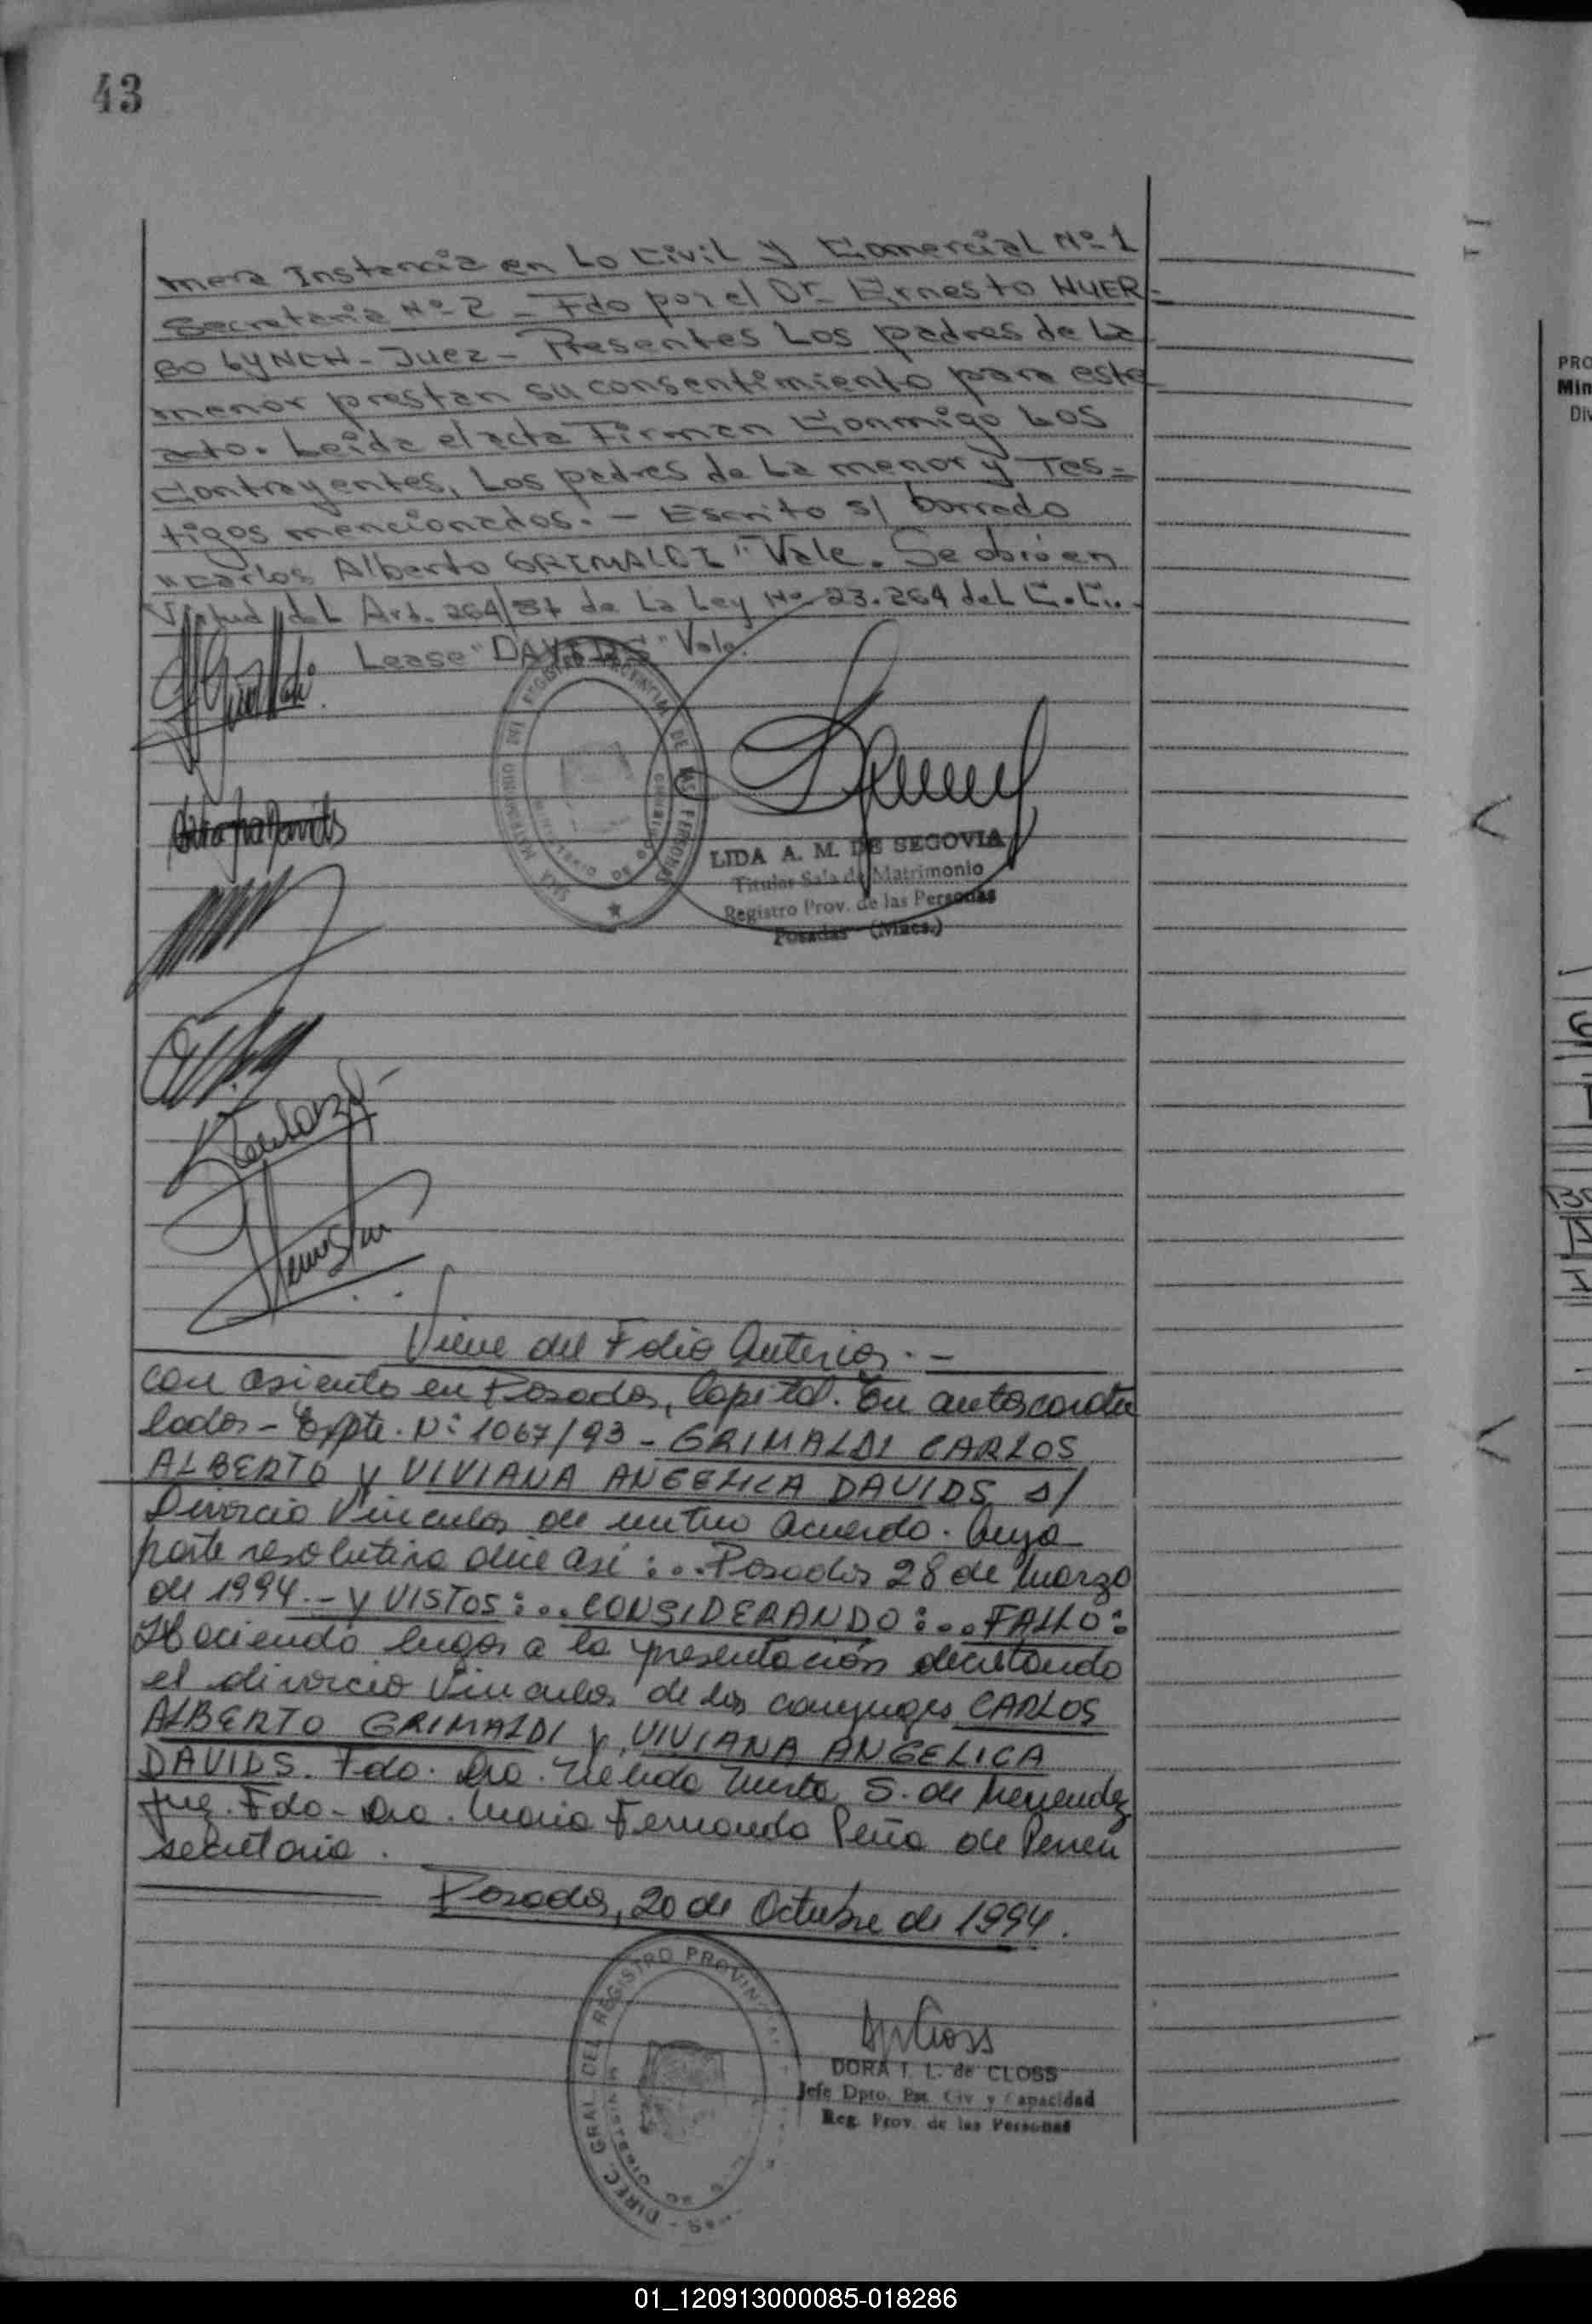 43
mera Instancia en Lo Civil y Comercial Nº 1
Secretaria Nº 2 - Fdo por el Dr. Ernesto NUER-
BO LYNCH - Juez - Presentes Los padres de La
menor prestan su consentimiento para este
acto. Leida el acta Firman Conmigo Los
Contrayentes, Los padres de La menor y Tes-
tigos mencionados. - Escrito s/ borrado
"Carlos Alberto GRIMALDI" Vale. Se obró en
Virtud del Art. 264/87 de La Ley Nº 23.264 del C.C..
Lease "DAVIDS" Vale.
SALA MATRIMONIO DEL REGISTRO PROVINCIAL DE LAS PERSONAS
LIDA A. M. DE SEGOVIA
Titular Sala de Matrimonio
Registro Prov. de las Personas
Posadas (Mnes.)
Viene del Folio Anterior. -
con asiento en Posadas, Capital. En autos caratu
lados - Expte. Nº 1067/93 - GRIMALDI CARLOS
ALBERTO y VIVIANA ANGELICA DAVIDS s/
Divorcio Vincular de mutuo acuerdo. Cuya
parte resolutiva dice asi: ... Posadas 28 de Marzo
de 1994. - y VISTOS: .. CONSIDERANDO: ... FALLO:
Haciendo lugar a la presentación decretando
el divorcio Vincular de los conyuges CARLOS
ALBERTO GRIMALDI y VIVIANA ANGELICA
DAVIDS. Fdo. Dra. S. de Menendez
Juez. Fdo - Dra. Maria Fernanda Peña de
secretaria.
Posadas, 20 de Octubre de 1994.
DIREC. GRAL. DEL REGISTRO PROVINCIAL
DORA I. L. de CLOSS
Jefe Dpto. Est. Civ y Capacidad
Reg. Prov. de las Personas
PRO
Min
Div
01_120913000085-018286